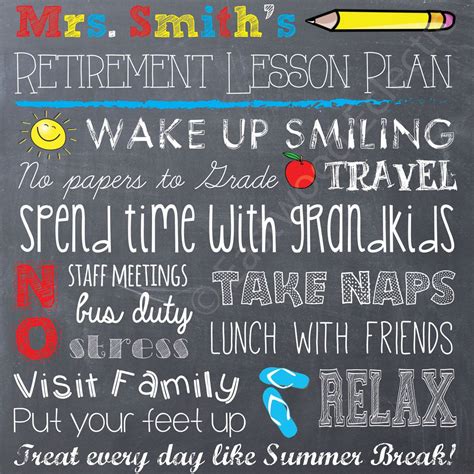 Mrs. Smith's
RETIREMENT LESSON PLAN
WAKE UP SMILING
No papers to Grade TRAVEL
spend time with grandkids
NO STAFF MEETINGS
bus duty
stress
TAKE NAPS
LUNCH WITH FRIENDS
Visit Family
Put your feet up
RELAX
Treat every day like Summer Break!